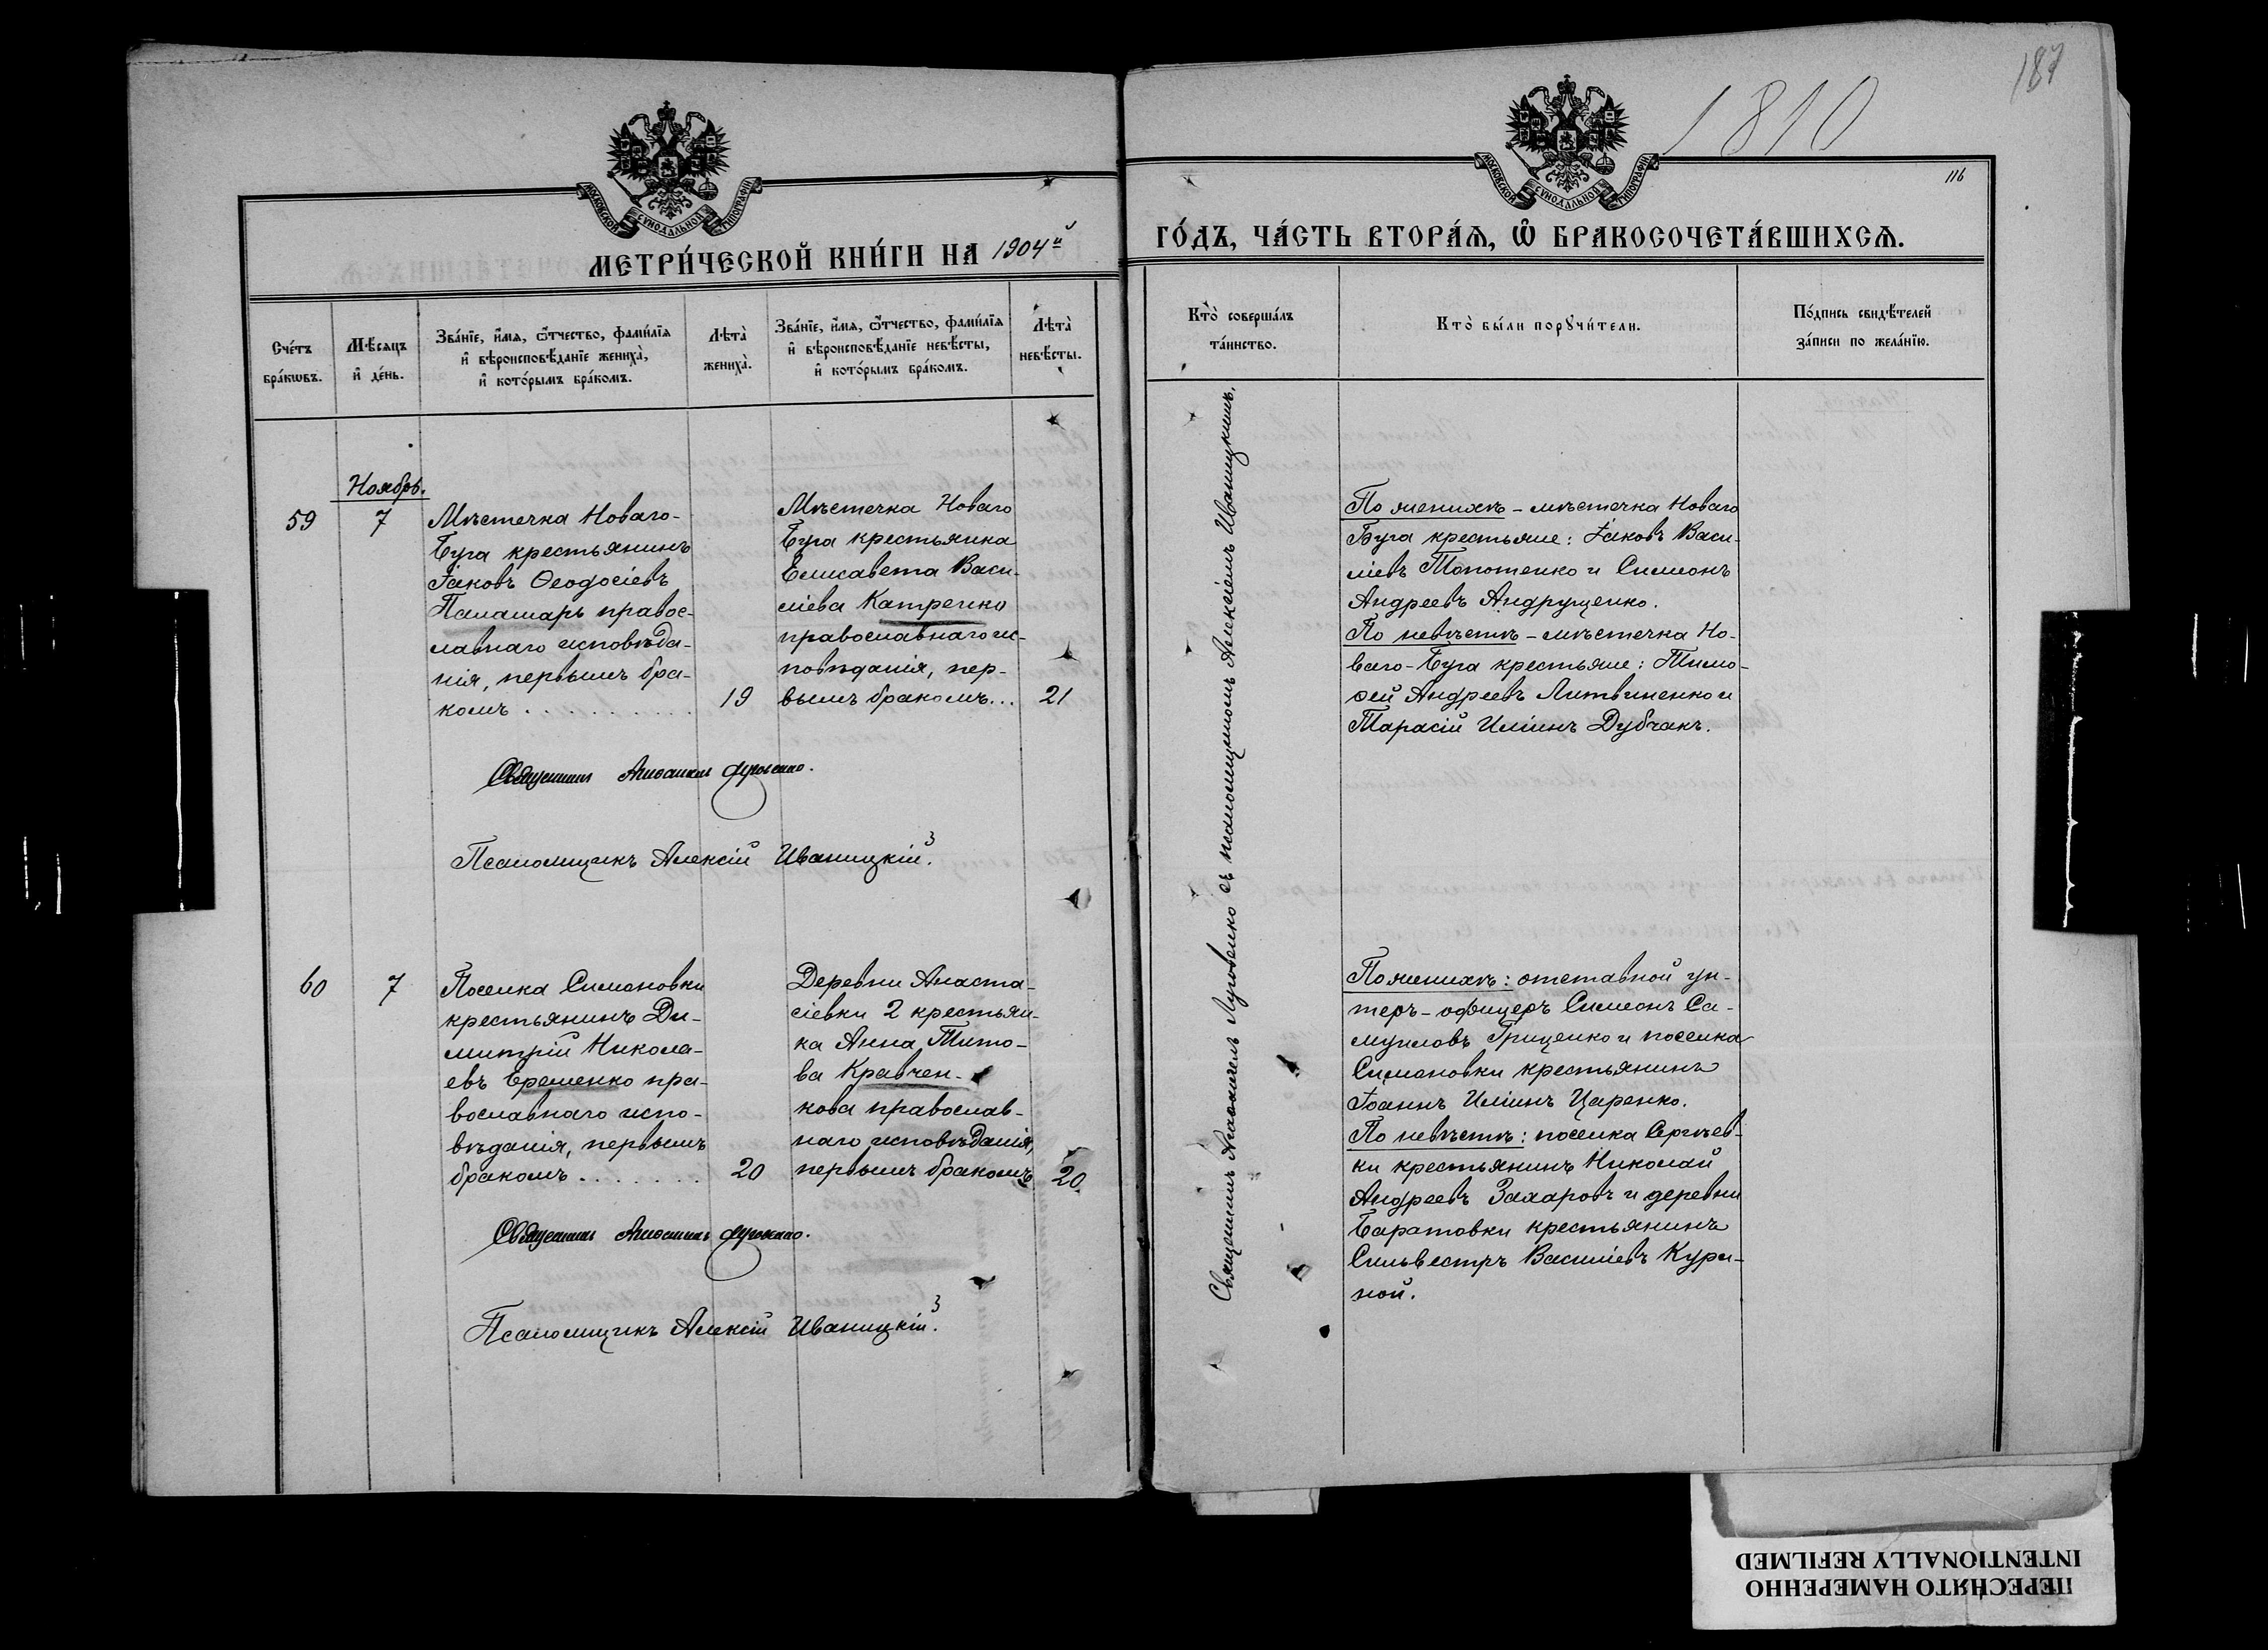 187
1810
116
МОСКОВСКОЙ СѴНОДАЛЬНОЙ ТИПОГРАФІИ
МОСКОВСКОЙ СѴНОДАЛЬНОЙ ТИПОГРАФІИ
МЕТРИ́ЧЕСКОЙ КНИ́ГИ НА 1904й
ГО́ДЪ, ЧА́СТЬ ВТОРА́Ѧ, Ѡ҆ БРАКОСОЧЕТА́ВШИХСѦ.
Сче́тъ
бра́кѡвъ.
Мѣ́сяцъ
и҆ де́нь.
Зва́нїе, и҆́мѧ, ѻ҆́тчество, фами́лїѧ
и҆ вѣроисповѣ́данїе жениха̀,
и҆ кото́рымъ бра́комъ.
Лѣта̀
жениха̀.
Зва́нїе, и҆́мѧ, ѻ҆́тчество, фами́лїѧ
и҆ вѣроисповѣ́данїе невѣ́сты,
и҆ кото́рымъ бра́комъ.
Лѣта̀
невѣ́сты.
Кто̀ соверша́лъ
та́инство.
Кто̀ бы́ли порꙋчи́тели.
По́дпись свидѣ́телей
за́писи по жела́нїю.
Ноябрь.
59
7
Мѣстечка Новаго-
Буга крестьянинъ
Іаковъ Ѳеодосіевъ
Паламарь правос-
лавнаго исповѣда-
нія, первымъ бра-
комъ . . . . . . . . .
19
Мѣстечка Новаго
Буга крестьянка
Елисавета Васи-
ліева Катренко
православнаго ис-
повѣданія, пер-
вымъ бракомъ...
21
Священникъ Аполлоній Луговенко.
Псаломщикъ Алексій Иваницкій.
Священникъ Луговенко съ псаломщикомъ Алексіемъ Иваницкимъ.
По женихѣ - мѣстечка Новаго
Буга крестьяне: Іаковъ Васи-
ліевъ Топотенко и Симеонъ
Андреевъ Андрущенко.
По невѣстѣ - мѣстечка Но-
ваго-Буга крестьяне: Тимо-
ѳей Андреевъ Литвиненко и
Тарасій Иліинъ Дубчакъ.
60
7
Поселка Симоновки
крестьянинъ Ди-
митрій Никола-
евъ Еременко пра-
вославнаго испо-
вѣданія, первымъ
бракомъ . . . . . . .
20
Деревни Анаста-
сіевки 2 крестьян-
ка Анна Тито-
ва Кравчен-
кова православ-
наго исповѣданія,
первымъ бракомъ
20
Псаломщикъ Алексій Иваницкій.
По женихѣ: отставной ун-
теръ-офицеръ Симеонъ Са-
муиловъ Гриценко и поселка
Симоновки крестьянинъ
Іоаннъ Иліинъ Царенко.
По невѣстѣ: поселка Сергѣев-
ки крестьянинъ Николай
Андреевъ Захаровъ и деревни
Баратовки крестьянинъ
Сильвестръ Василіевъ Кури-
ной.
ПЕРЕСНЯТО НАМЕРЕННО
INTENTIONALLY REFILMED